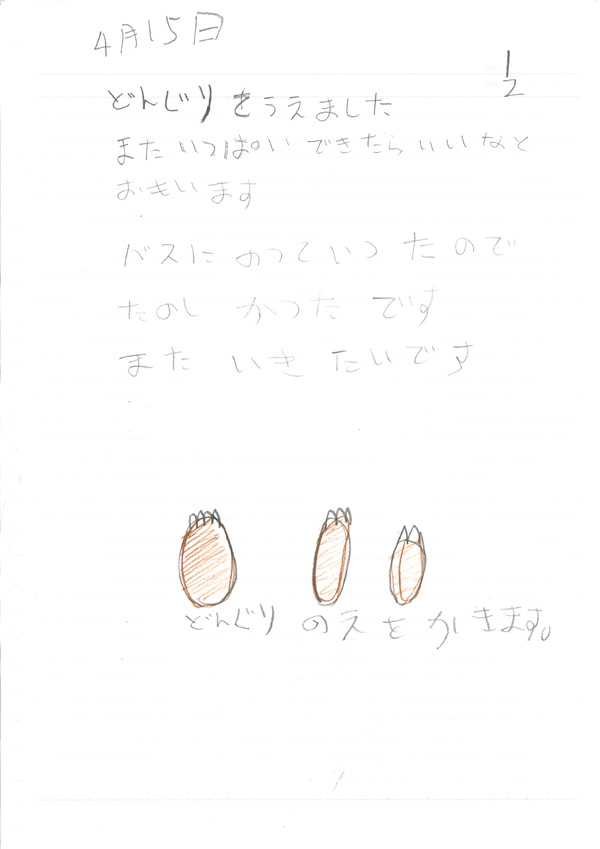 4月15日
1/2
どんぐりをうえました
またいっぱいできたらいいなと
おもいます
バスにのっていったので
たのしかったです
またいきたいです
どんぐりのえをかきます。